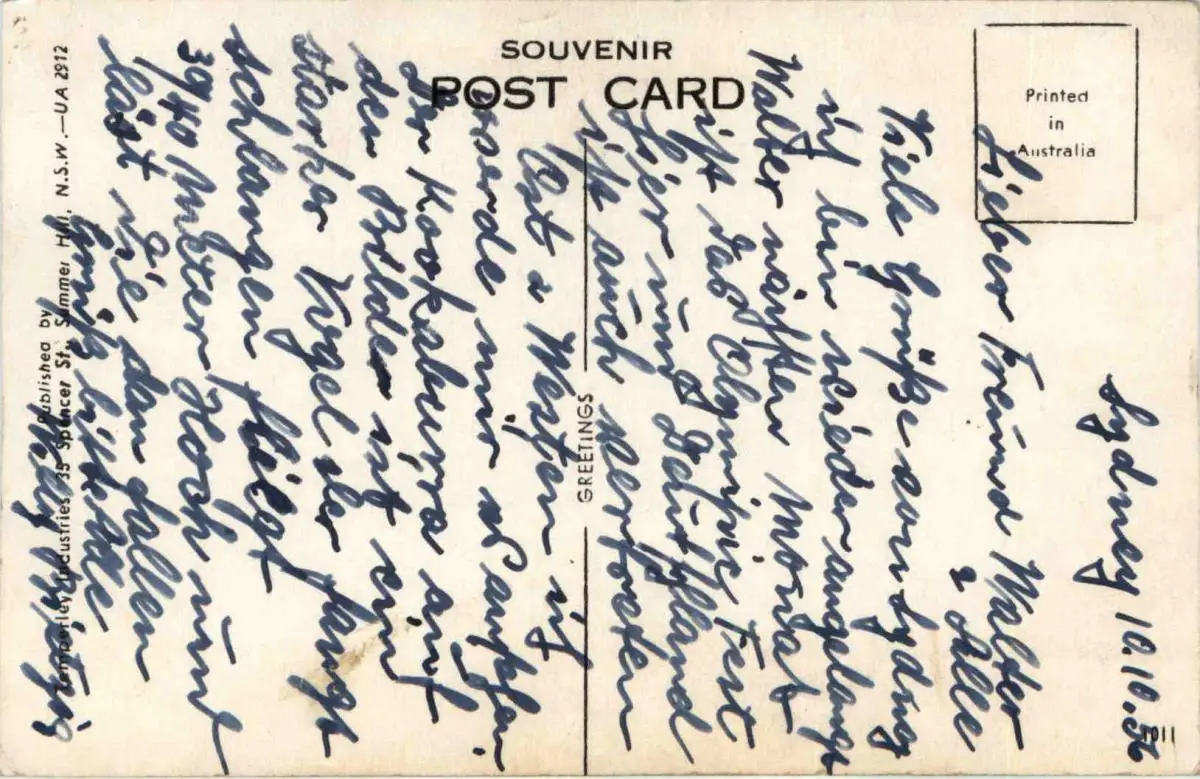 SOUVENIR
POST CARD
Printed
in
Australia
GREETINGS
Published by
Industries 35 Spencer St., Summer Hill, N.S.W.—UA 2912
1011
Sydney 10.10.56
Lieber Freund Walter
& Alle
Viele Grüße von Sydney
ich bin wieder angelangt
Walter nächsten Monat
ist das Olympic Fest
hier und Deutschland
ist auch vertreten
Ost & Westen ich
werde mir
der Kookaburra auf
den Bilder ist ein
starker Vogel der fangt
schlangen fliegt
39/40 Meter Hoch und
läst sie dan fallen
Gruß